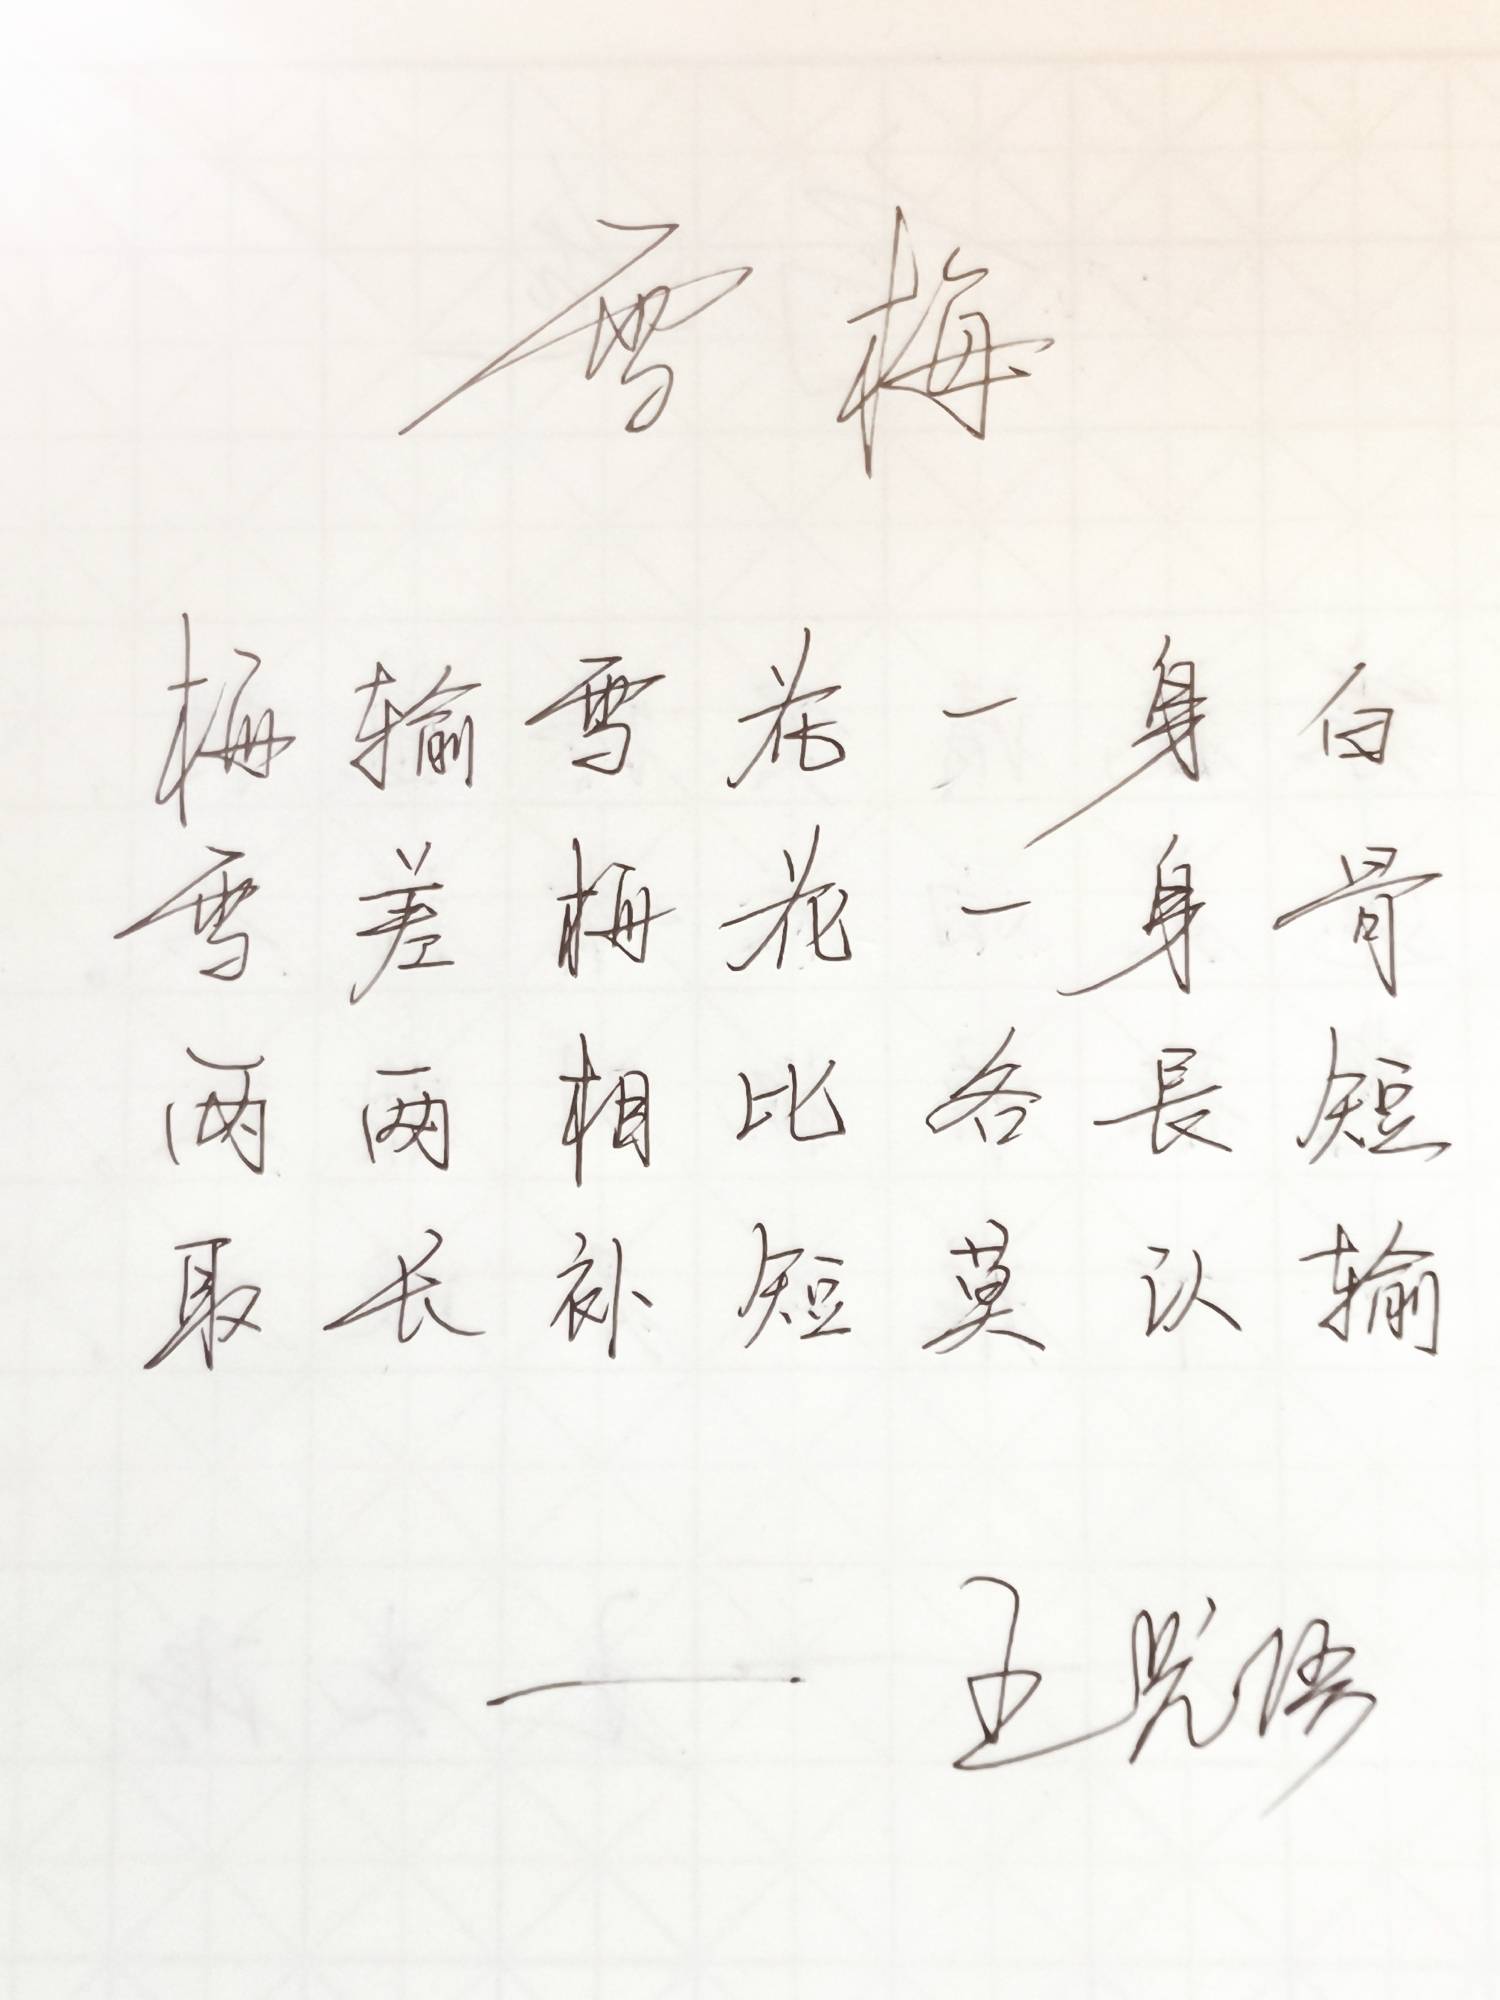 雪梅
梅输雪花一身白
雪差梅花一身骨
两两相比各長短
取长补短莫认输
—— 王